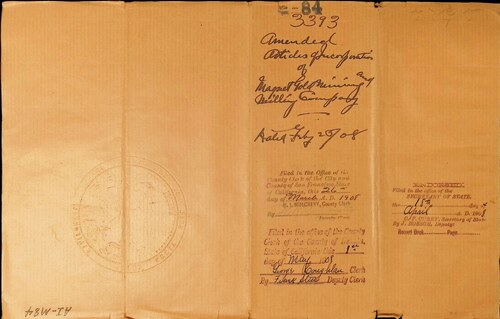 84
3393
Amended
Articles of Incorporation
of
Magnet Gold Mining and
Milling Company
Dated Feby 28/08
Filed in the Office of the
County Clerk of the City and
County of San Francisco, State
of California, this 26
day of March A. D. 1908
Deputy Clerk
Filed in the office of the County
Clerk of the County of
State of California this 1st
day of May 1908
Clerk
By Deputy Clerk
Filed in the office of the
SECRETARY OF STATE,
April A. D. 1908
C. F. CURRY, Secretary of State
By J. HOESCH, Deputy
Record Book Page
A1-M34